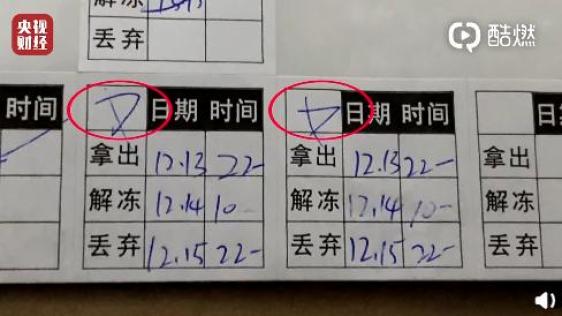 央视
财经
酷燃
解冻
丢弃
时间
日期 时间
拿出 12.13 22-
解冻 12.14 10-
丢弃 12.15 22-
日期 时间
拿出 12.13 22-
解冻 12.14 10-
丢弃 12.15 22-
拿出
解冻
丢弃